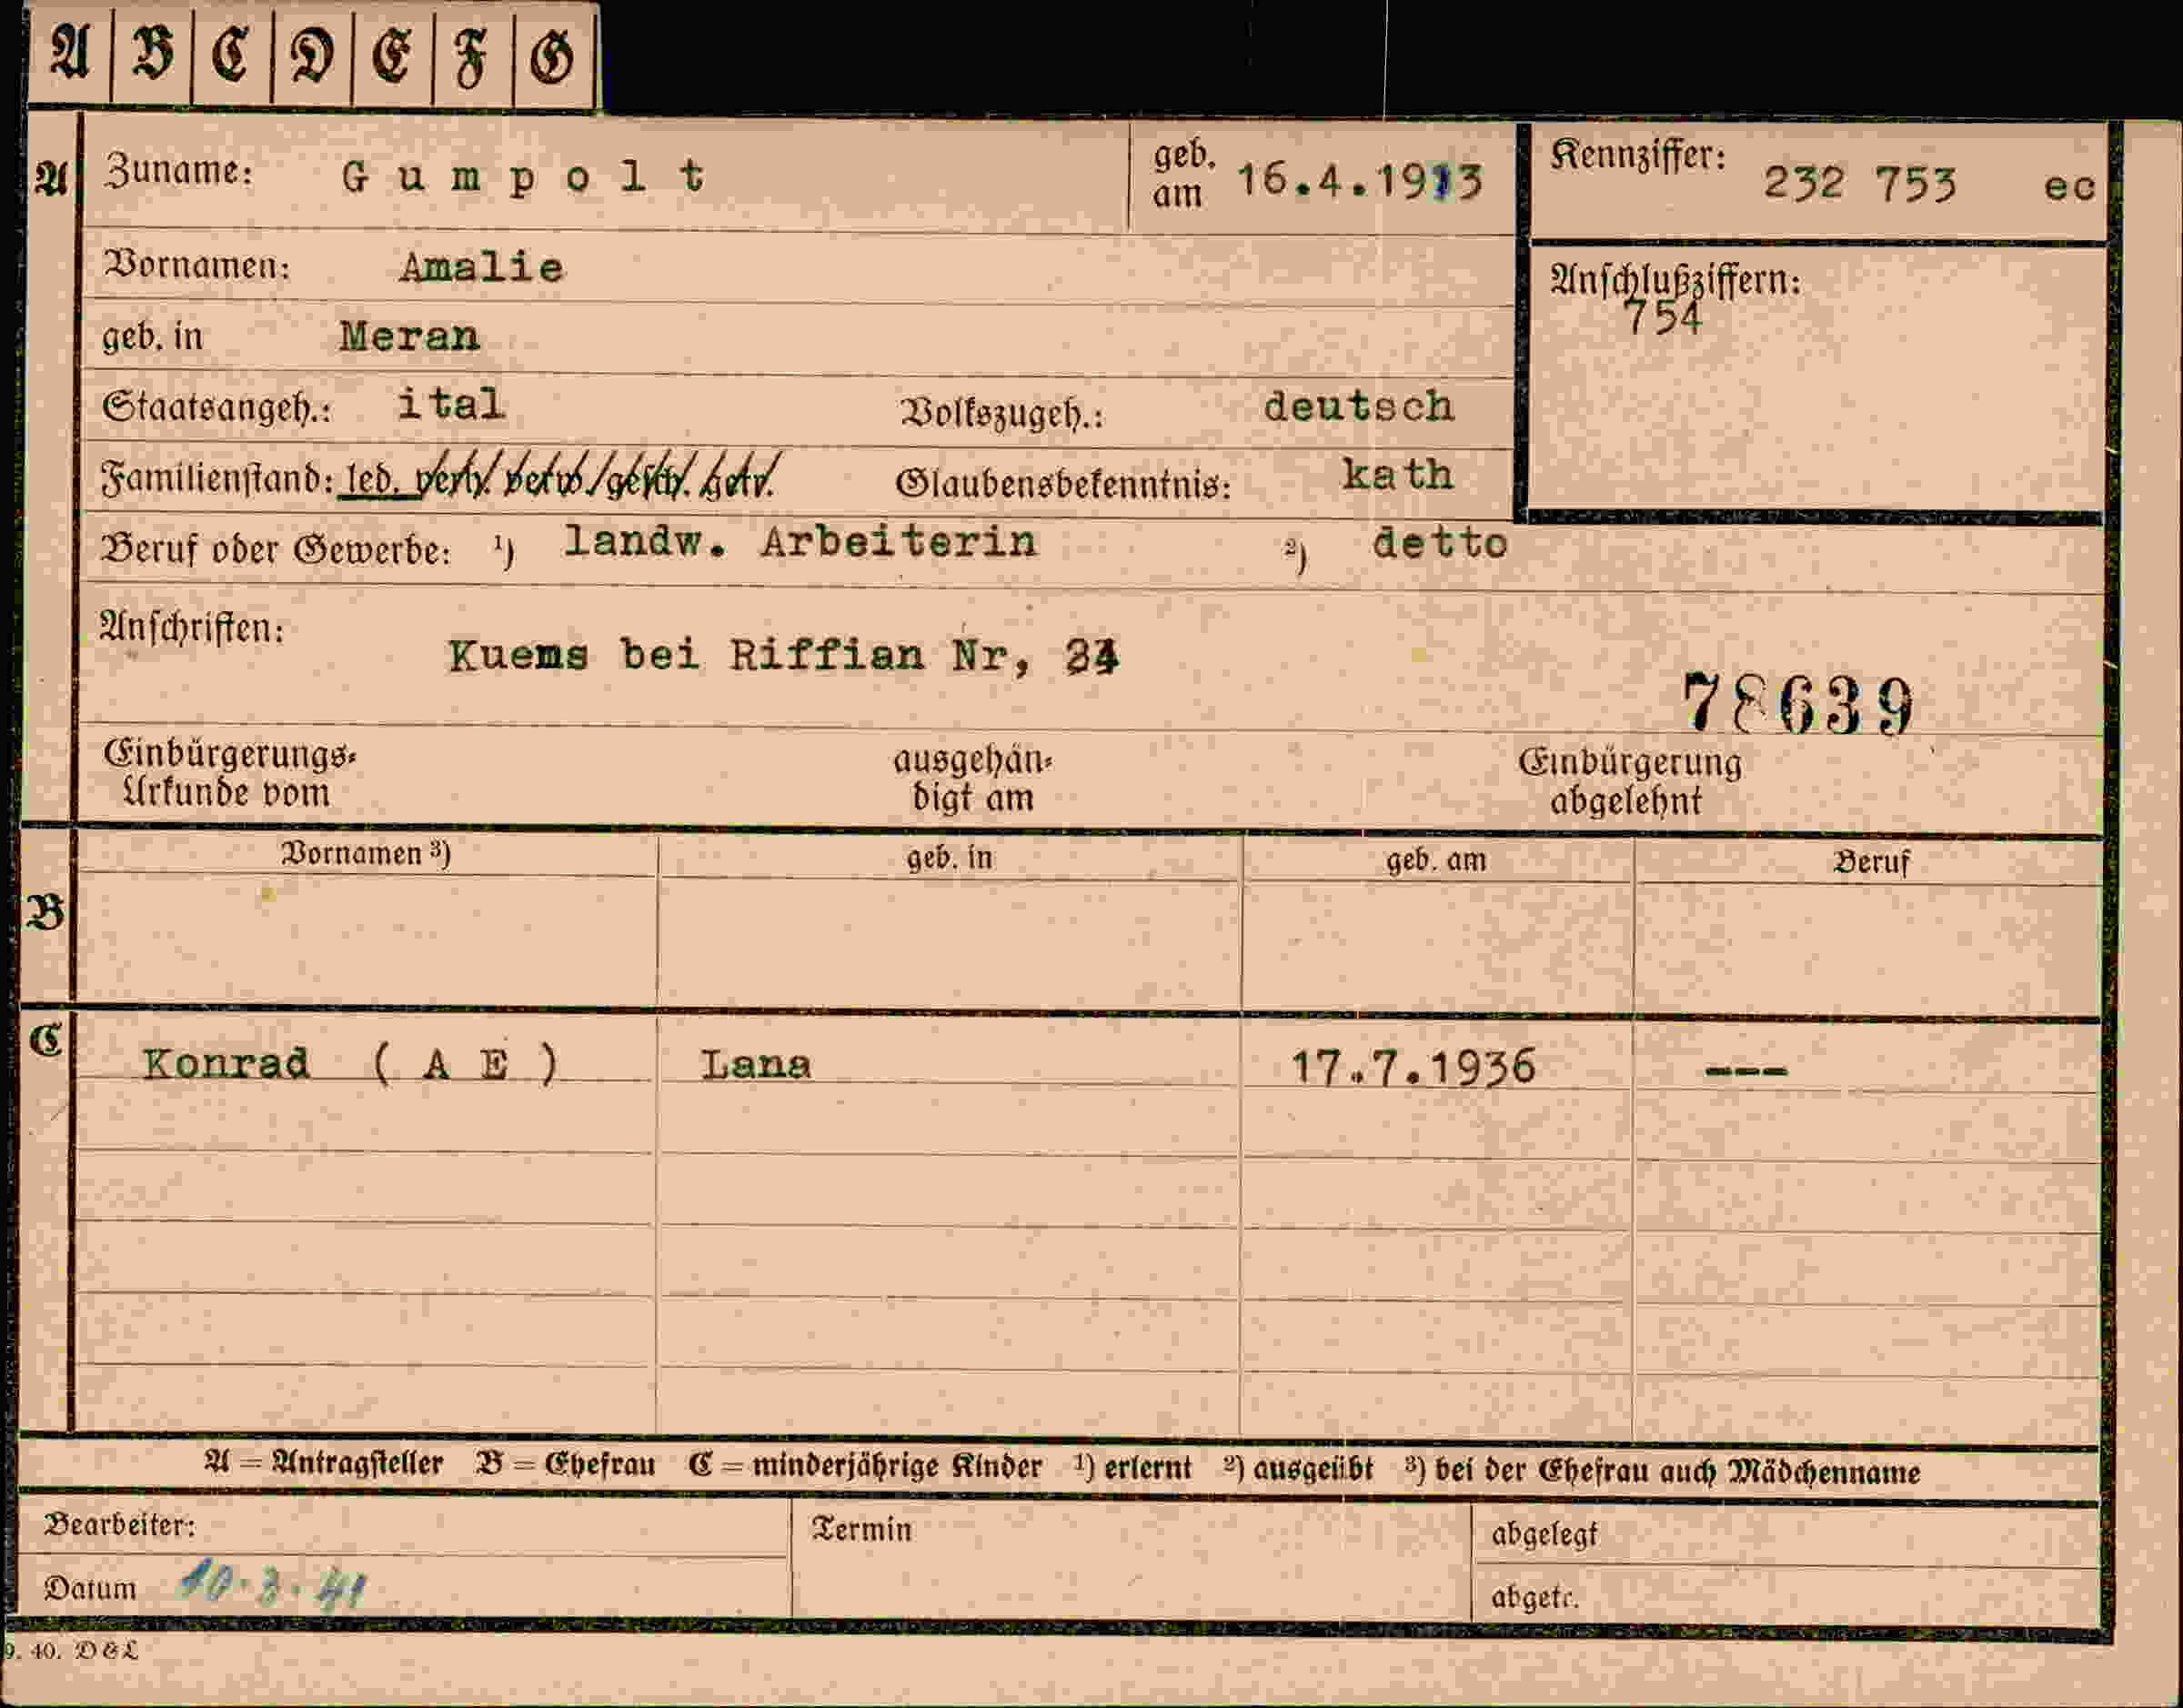 A B C D E F G
A Zuname: Gumpolt geb. am 16.4.1913 Kennziffer: 232 753 ec
Vornamen: Amalie Anschlußziffern:
754
geb. in Meran
Staatsangeh.: ital Volkszugeh.: deutsch
Familienstand: led. verh. verw. gesch. getr. Glaubensbekenntnis: kath
Beruf oder Gewerbe: ¹) landw. Arbeiterin ²) detto
Anschriften: Kuems bei Riffian Nr,
78639
Einbürgerungs- ausgehän- Einbürgerung
Urkunde vom digt am abgelehnt
Vornamen ³) geb. in geb. am Beruf
B
C Konrad ( A E ) Lana 17.7.1936 ---
A = Antragsteller B = Ehefrau C = minderjährige Kinder ¹) erlernt ²) ausgeübt ³) bei der Ehefrau auch Mädchenname
Bearbeiter: Termin abgelegt
Datum 10.3.41 abgetr.
9. 40. D&L